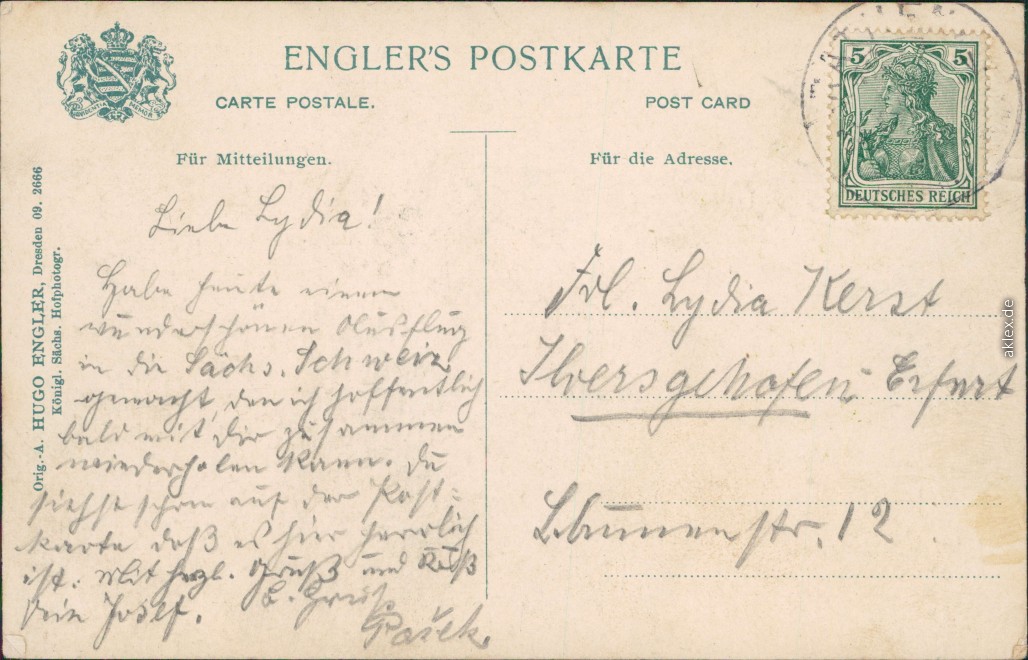 ENGLER'S POSTKARTE
CARTE POSTALE.
POST CARD
PROVIDENTIAE MEMOR
5 5
DEUTSCHES REICH
Für Mitteilungen.
Für die Adresse.
Liebe Lydia!
Habe heute einen
wunderschönen Ausflug
in die Sächs. Schweiz
gemacht, den ich hoffentlich
bald mit Dir zusammen
wiederholen kann. Du
siehst schon auf der Post-
karte daß es hier herrlich
ist. Mit herzl. Gruß und Kuß
Dein Josef.
Gruß
Frl. Lydia Kerst
Ilversgehofen Erfurt
Blumenstr. 12
Orig.-A. HUGO ENGLER, Dresden 09. 2666
Königl. Sächs. Hofphotogr.
aklex.de